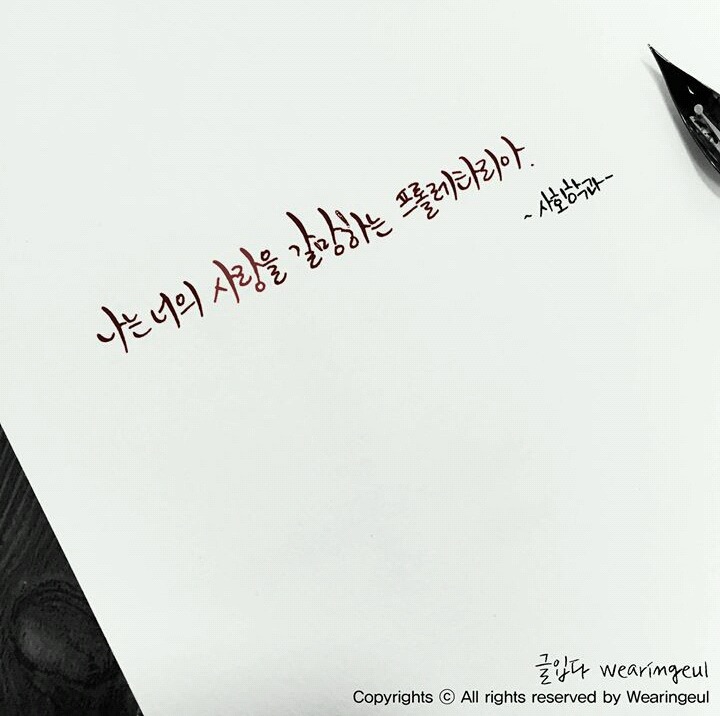 나는 너의 사랑을 갈망하는 프롤레타리아.
~사회학과~
글입다 wearingeul
Copyrights ⓒ All rights reserved by Wearingeul